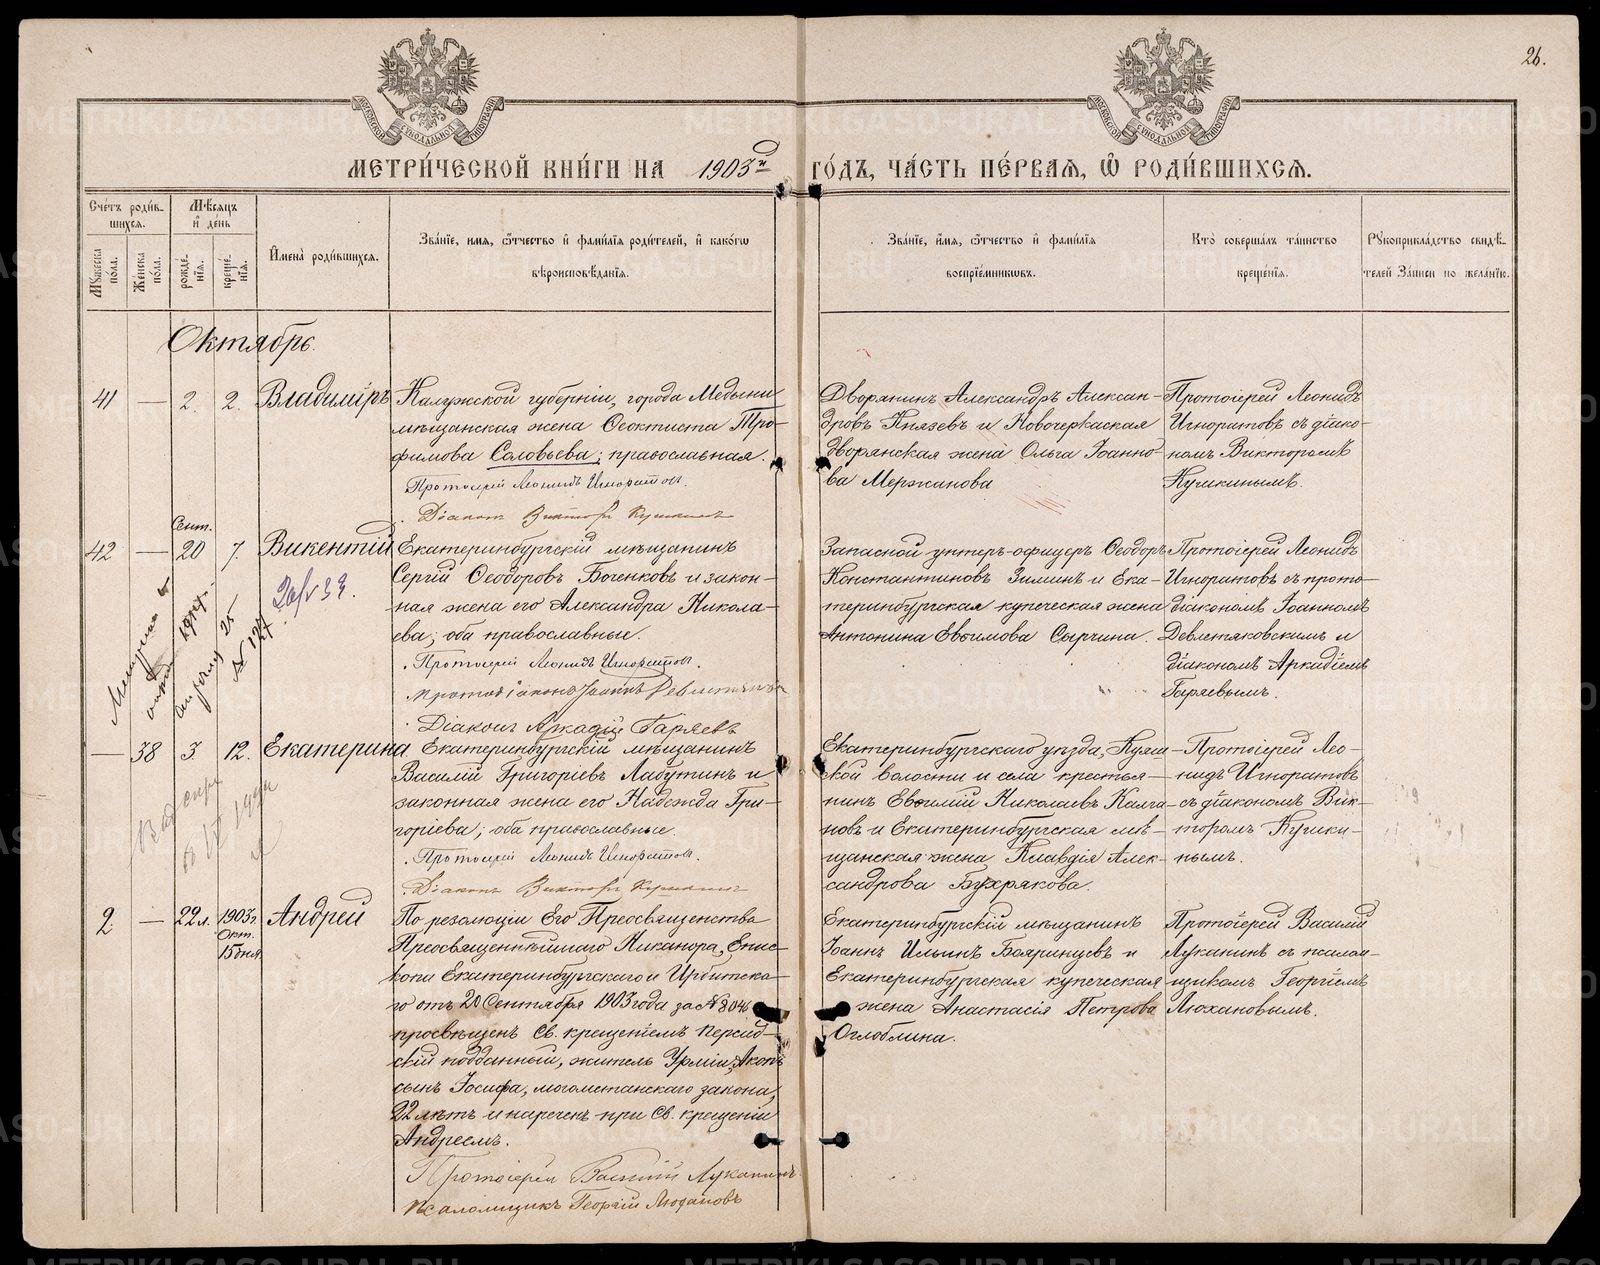 26.
МЕТРИ́ЧЕСКОЙ КНИ́ГИ НА 1903й ГО́ДЪ, ЧА́СТЬ ПЕ́РВАЯ, Ѿ РОДИ́ВШИХСЯ.
Сче́тъ роди́в-
шихся.
Мꙋ́жеска по́ла.
Же́нска по́ла.
Мѣ́сяцъ
и҆ де́нь
рожде́-
нїя.
креще́-
нїя.
И҆мена̀ роди́вшихся.
Зва́нїе, и҆́мя, ѻ҆́тчество и҆ фамѝлїя роди́телей, и҆ како́гѡ
вѣроисповѣ́данїя.
Зва́нїе, и҆́мя, ѻ҆́тчество и҆ фамѝлїя
воспрїе́мникѡвъ.
Кто̀ соверша́лъ та́инство
креще́нїя.
Рꙋкоприкла́дство свидѣ́-
телей За́писи по жела́нїю.
Октябрь.
41 — 2. 2. Владиміръ
Калужской губерніи, города Медыни
мѣщанская жена Ѳеоктиста Тро-
фимова Соловьева; православная.
Протоіерей Леонидъ Игноратовъ.
Діаконъ Викторъ Кушкинъ
Дворянинъ Александръ Алексан-
дровъ Князевъ и Новочеркаская
дворянская жена Ольга Іоанно-
ва Мержанова
Протоіерей Леонидъ
Игноратовъ съ діако-
номъ Викторомъ
Кушкинымъ.
42 — Сент. 20 7. Викентій
Екатеринбургскій мѣщанинъ
Сергій Ѳеодоровъ Боченковъ и закон-
ная жена его Александра Никола-
ева; оба православные.
Протоіерей Леонидъ Игноратовъ.
Протодіаконъ Іоаннъ Девлетяковъ
Діаконъ Аркадій Гаряевъ
№ 127
Запасной унтеръ-офицеръ Ѳеодоръ
Константиновъ Зиминъ и Ека-
теринбургская купеческая жена
Антонина Евѳимова Сырчина.
Протоіерей Леонидъ
Игноратовъ съ прото-
діакономъ Іоанномъ
Девлетяковскимъ и
діакономъ Аркадіемъ
Гаряевымъ.
— 38 3. 12. Екатерина
Екатеринбургскій мѣщанинъ
Василій Григоріевъ Лабутинъ и
законная жена его Надежда Гри-
горіева; оба православные.
Протоіерей Леонидъ Игноратовъ.
Діаконъ Викторъ Кушкинъ
Екатеринбургскаго уѣзда,
ской волости и села крестья-
нинъ Евѳимій Николаевъ Калга-
новъ и Екатеринбургская мѣ-
щанская жена Клавдія Алек-
сандрова Бухрякова.
Протоіерей Лео-
нидъ Игноратовъ
съ діакономъ Вик-
торомъ Кушки-
нымъ.
2 — 22л. 1903г. Окт. 15 дня Андрей
По резолюціи Его Преосвященства
Преосвященнѣйшаго Никанора, Епис-
копа Екатеринбургскаго и Ирбитска-
го отъ 20 Сентября 1903 года за №
просвѣщенъ Св. крещеніемъ персид-
скій подданный, житель Урміи, Акопъ
сынъ Іосифа, магометанскаго закона,
22 лѣтъ и нареченъ при Св. крещеніи
Андреемъ.
Протоіерей Василій Луканинъ
Псаломщикъ Георгій Люхановъ
Екатеринбургскій мѣщанинъ
Іоаннъ Ильинъ Бояринцевъ и
Екатеринбургская купеческая
жена Анастасія Петрова
Оглоблина.
Протоіерей Василій
Луканинъ съ псалом-
щикомъ Георгіемъ
Люхановымъ.